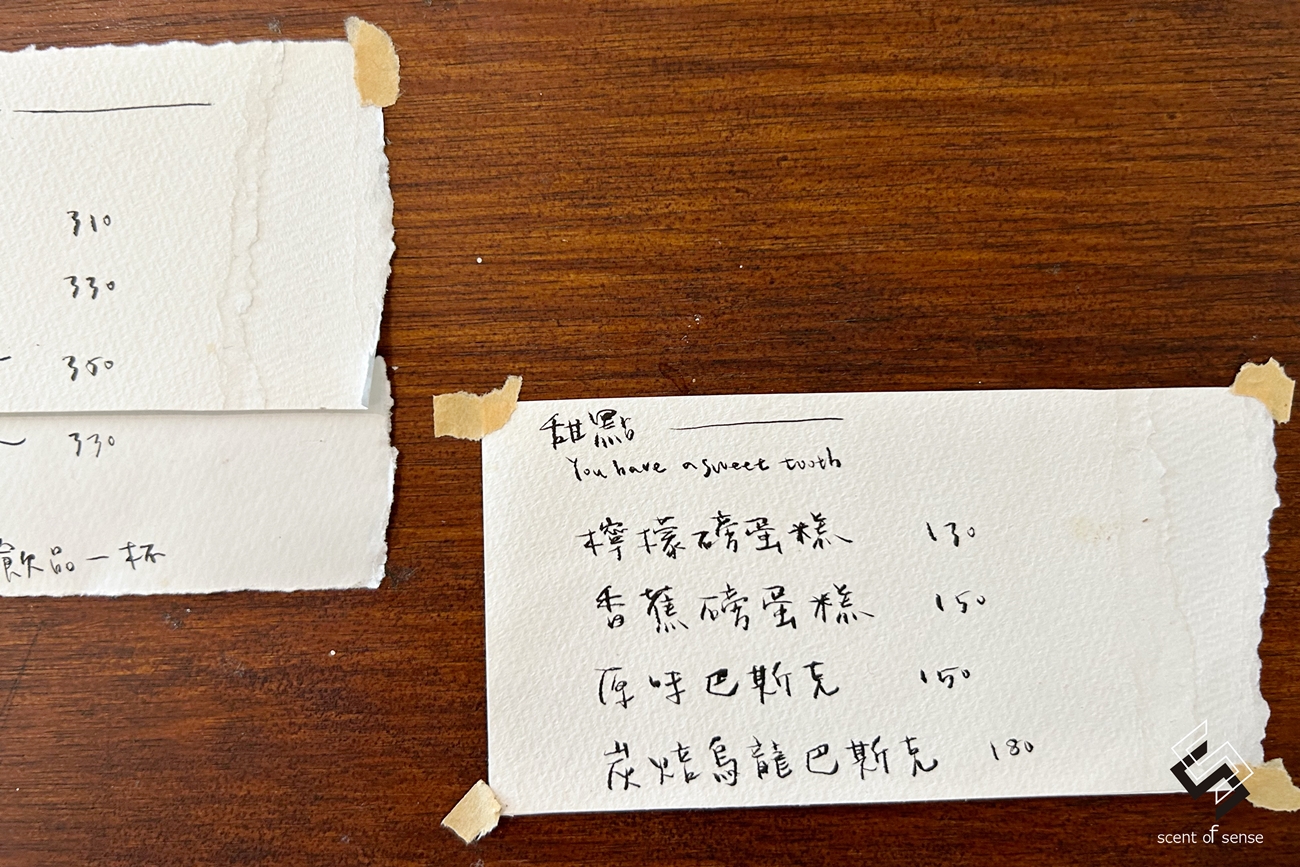 310
330
350
330
飲品一杯
甜點
You have a sweet tooth
檸檬磅蛋糕 130
香蕉磅蛋糕 150
原味巴斯克 150
炭焙烏龍巴斯克 180
scent of sense